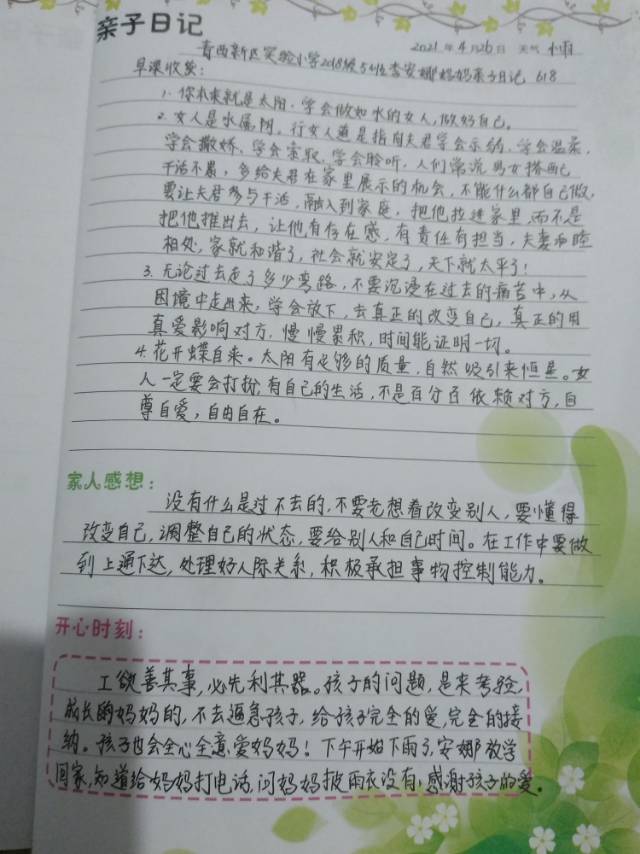 亲子日记
2021年4月26日 天气 小雨
青西新区实验小学2018级5班李安娜妈妈亲子日记 618
早课收获：
1. 你本来就是太阳. 学会做如水的女人, 做好自己。
2. 女人是水属阴. 行女人道是指向夫君学会示弱. 学会温柔.
学会撒娇、学会索取、学会聆听. 人们常说男女搭配
干活不累, 多给夫君在家里展示的机会, 不能什么都自己做,
要让夫君参与干活, 融入到家庭. 把他拉进家里, 而不是
把他推出去, 让他有存在感, 有责任有担当, 夫妻和睦
相处, 家就和谐了, 社会就安定了, 天下就太平了!
3. 无论过去走了多少弯路, 不要沉浸在过去的痛苦中, 从
困境中走出来, 学会放下, 去真正的改变自己, 真正的用
真爱影响对方, 慢慢累积, 时间能证明一切。
4. 花开蝶自来。太阳有足够的质量, 自然吸引来恒星。女
人一定要会打扮, 有自己的生活, 不是百分百依赖对方, 自
尊自爱, 自由自在。
家人感想：
没有什么是过不去的, 不要老想着改变别人, 要懂得
改变自己, 调整自己的状态, 要给别人和自己时间。在工作中要做
到上通下达, 处理好人际关系, 积极承担事物控制能力。
开心时刻：
工欲善其事, 必先利其器。孩子的问题, 是来考验
成长的妈妈的, 不去逼急孩子, 给孩子完全的爱, 完全的接
纳。孩子也会全心全意爱妈妈! 下午开始下雨了, 安娜放学
回家, 知道给妈妈打电话, 问妈妈披雨衣没有, 感谢孩子的爱.